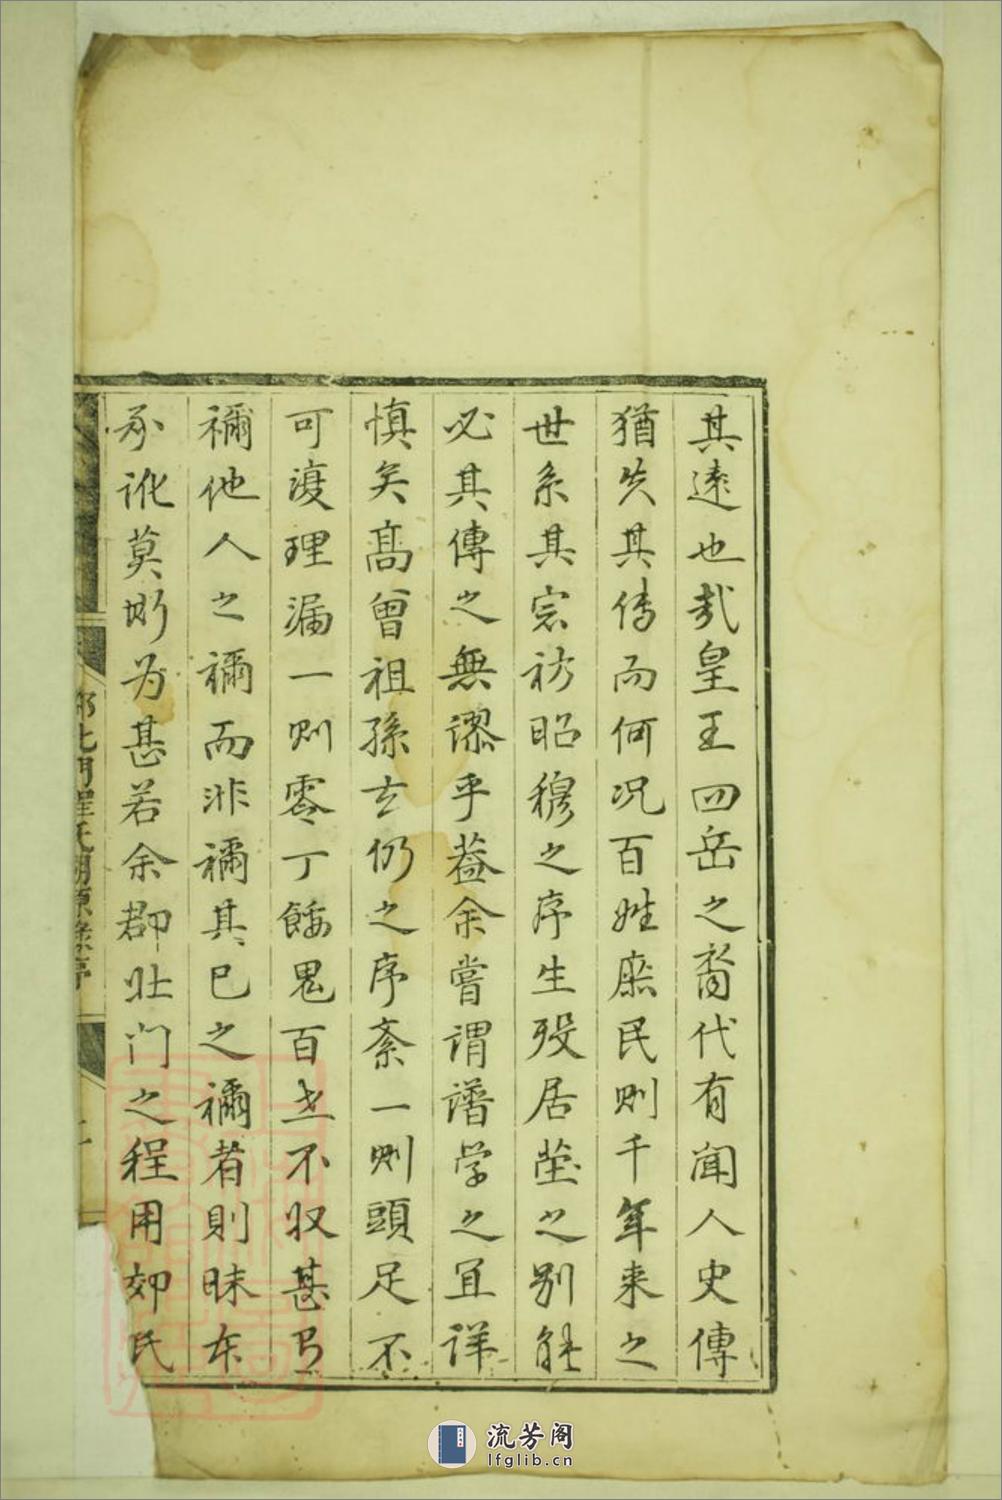 其遠也哉皇王四岳之裔代有聞人史傳
猶失其传而何况百姓庶民则千年来之
世系其宗祊昭穆之序生歿居茔之别能
必其傳之無謬乎葢余嘗谓谱学之宜详
慎矣髙曾祖孫玄仍之序紊一则頭足不
可渡理漏一则零丁餒鬼百世不收甚乃
禰他人之禰而非禰其已之禰者則昧本
承讹莫斯为甚若余郡北门之程用
氏
北門程氏溯源
序
流芳阁
lfglib.cn